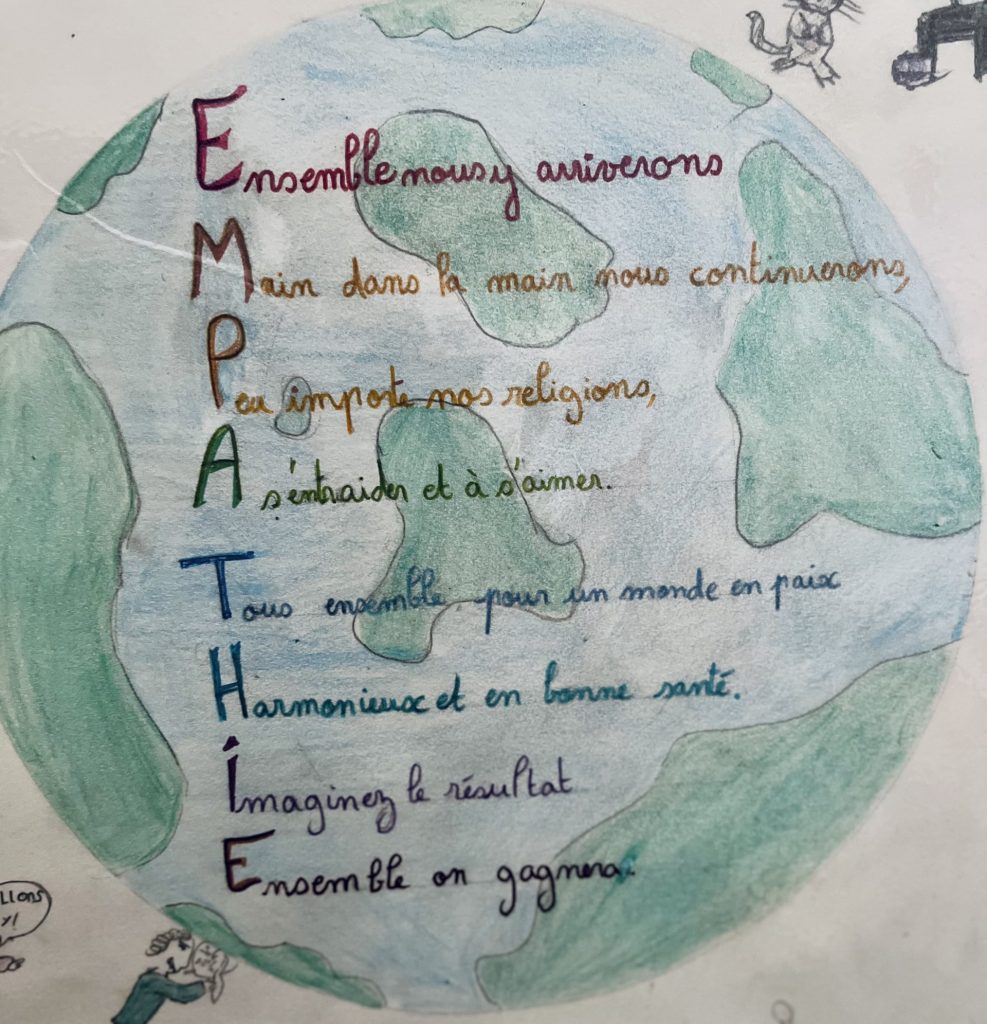 Ensemble nous y arriverons
Main dans la main nous continuerons,
Peu importe nos religions,
A s'entraider et à s'aimer.
Tous ensemble pour un monde en paix
Harmonieux et en bonne santé.
Imaginez le résultat
Ensemble on gagnera.
LLONS
Y!